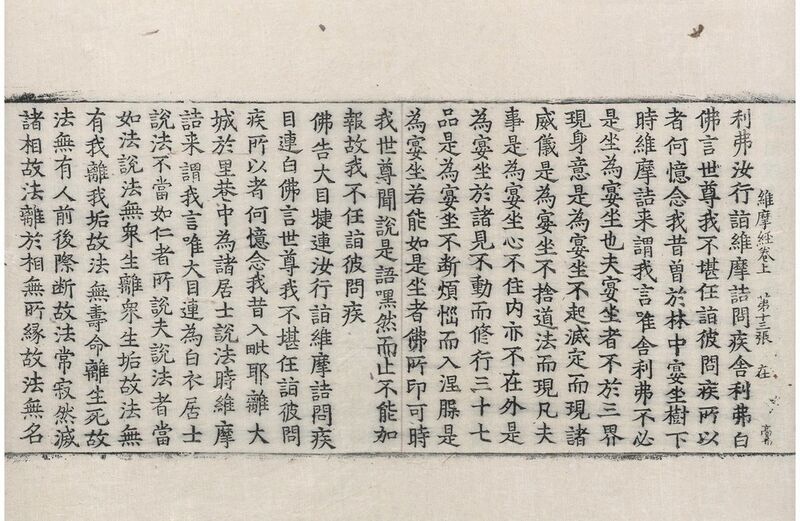 維摩経卷上 第十三張 在
利弗汝行詣維摩詰問疾舍利弗白
佛言世尊我不堪任詣彼問疾所以
者何憶念我昔曽於林中宴坐樹下
時維摩詰来謂我言唯舍利弗不必
是坐為宴坐也夫宴坐者不於三界
現身意是為宴坐不起滅定而現諸
威儀是為宴坐不捨道法而現凡夫
事是為宴坐心不住内亦不在外是
為宴坐於諸見不動而修行三十七
品是為宴坐不断煩惱而入涅槃是
為宴坐若能如是坐者佛所印可時
我世尊聞說是語嘿然而止不能加
報故我不任詣彼問疾
佛告大目犍連汝行詣維摩詰問疾
目連白佛言世尊我不堪任詣彼問
疾所以者何憶念我昔入毗耶離大
城於里巷中為諸居士說法時維摩
詰来謂我言唯大目連為白衣居士
說法不當如仁者所說夫說法者當
如法說法無衆生離衆生垢故法無
有我離我垢故法無壽命離生死故
法無有人前後際断故法常寂然滅
諸相故法離於相無所縁故法無名